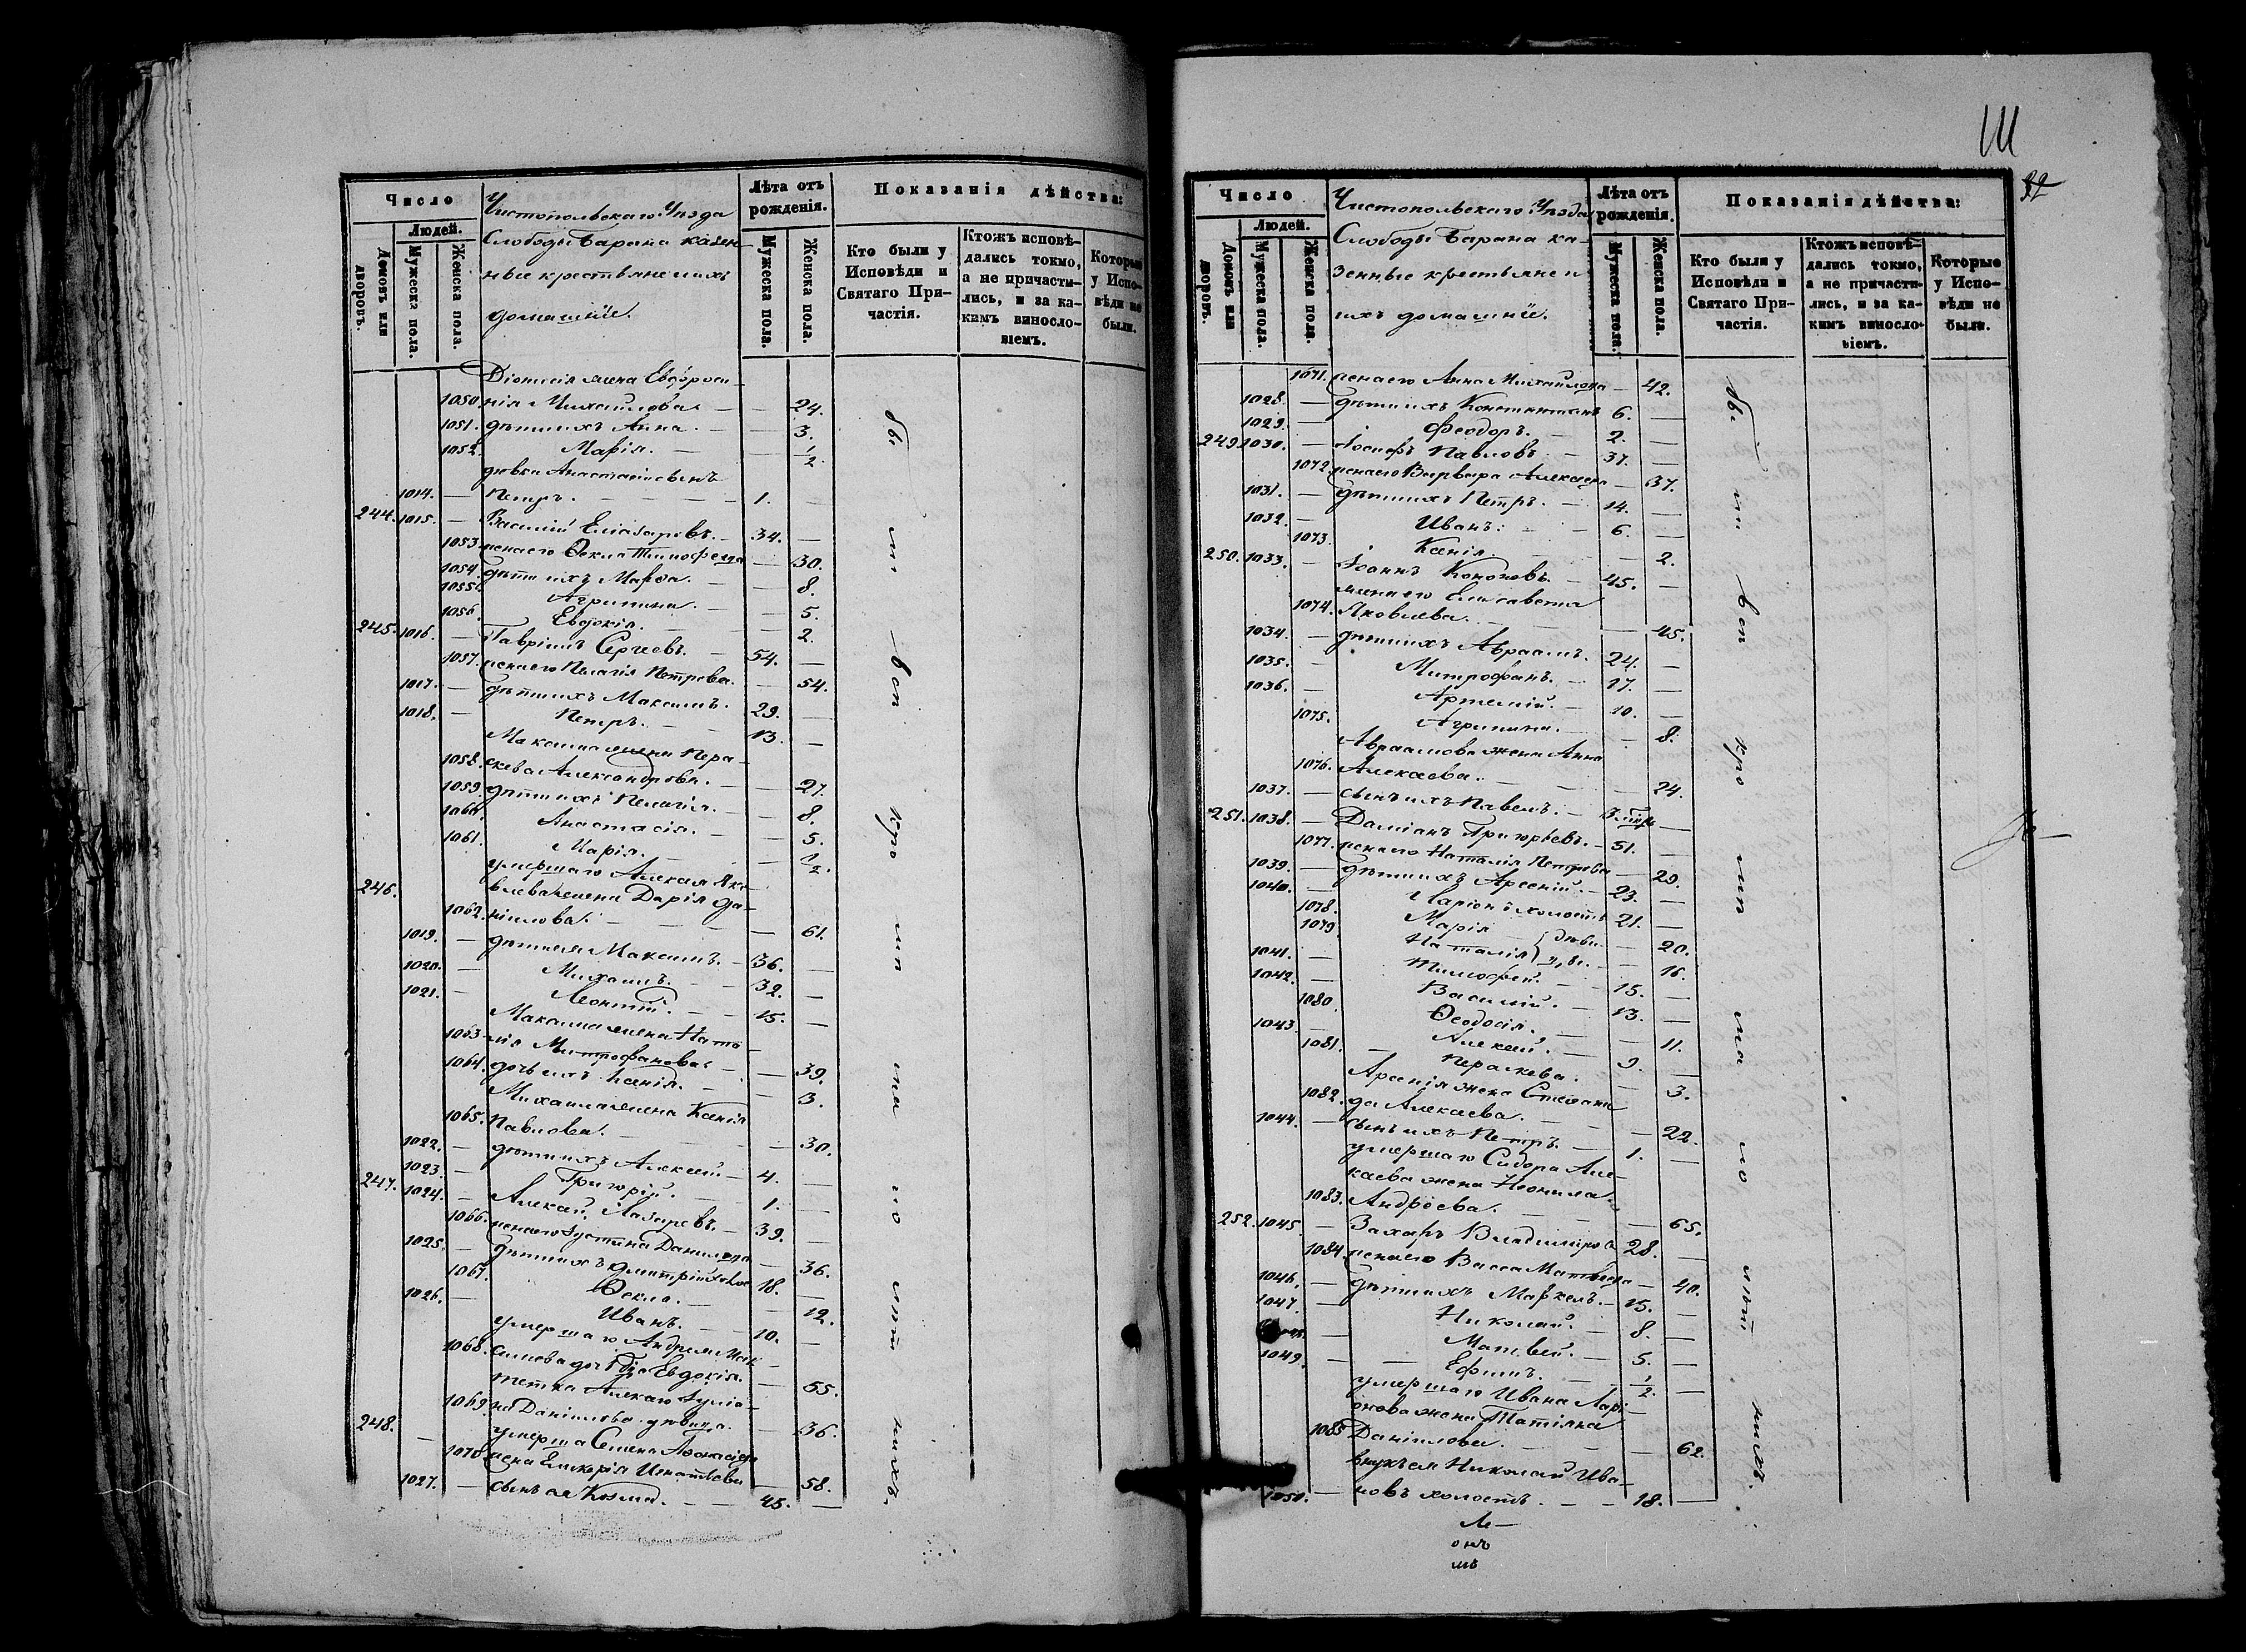 Число
Людей.
Домовъ или дворовъ.
Мужеска пола.
Женска пола.
Чистопольскаго Уѣзда
Слободы Барана казен-
ные крестьяне и ихъ
домашніе.
Лѣта отъ рожденія.
Мужеска пола.
Женска пола.
Показанія дѣйства:
Кто были у Исповѣди и Святаго При-частія.
Ктожъ исповѣ-дались токмо, а не причасти-лись, и за ка-кимъ винословіемъ.
Которые у Испо-вѣди не были.
Діонисія жена Евфроси-
1050. нія Михайлова — — 24.
1051. дѣти ихъ Анна. — — 3.
1052. Марія. — — 1/2.
дѣвки Анастасіи сынъ
1014. — Петръ. — 1. —
244. 1015. — Василій Еліазаровъ. — 34. —
1053. жена его Ѳекла Тимофеева — 30.
1054. дѣти ихъ Марѳа. — — 8.
1055. Агрипина. — — 5.
1056. Евдокія. — — 2.
245. 1016. — Гавріилъ Сергеевъ. — 54. —
1057. жена его Пелагія Петрова. — 54.
1017. — дѣти ихъ Максимъ. 29. —
1018. — Петръ. — 13. —
Максима жена Пара-
1058. скева Александрова. — — 27.
1059. дѣти ихъ Пелагія. — — 8.
1060. Анастасія. — — 5.
1061. Марія. — — 1/2.
246. умершаго Алексея Яко-
влева жена Дарія Да-
1062. ніилова. — — 61.
1019. — дѣти ея Максимъ. — 36. —
1020. — Михаилъ. — 32. —
1021. — Леонтій. — 15. —
Максима жена Ната-
1063. лія Митрофанова — — 39.
1064. дочь ихъ Ксенія. — — 3.
Михаила жена Ксенія
1065. Павлова. — — 30.
1022. — дѣти ихъ Алексей — 4. —
1023. — Григорій. — 1. —
247. 1024. — Алексей Лазаревъ. — 39. —
1066. жена его Іустина Данилова — 36.
1025. — дѣти ихъ Дмитрій 18. —
1067. Ѳекла. — — 12.
1026. — Иванъ. — 10. —
умершаго Андрея Мак-
1068. симова дочь Евдокія. — 55.
тетка Алексея Іуліа-
1069. на Даніилова вдовица. — 36.
248. — умерша Семена Аѳанасьева
1070. жена Гликерія Игнатьева — 58.
1027. — сынъ ея Козма. — 45. —
бы
ли
вси
кро
мѣ
ма
ло
лѣт
нихъ.
111
32
Число
Людей.
Домовъ или дворовъ.
Мужеска пола.
Женска пола.
Чистопольскаго Уѣзда
Слободы Барана ка-
зенные крестьяне и
ихъ домашніе.
Лѣта отъ рожденія.
Мужеска пола.
Женска пола.
Показанія дѣйства:
Кто были у Исповѣди и Святаго При-частія.
Ктожъ исповѣ-дались токмо, а не причасти-лись, и за ка-кимъ винословіемъ.
Которые у Испо-вѣди не были.
1071. жена его Анна Михайлова — 42.
1028. — дѣти ихъ Константинъ 6. —
1029. — Феодоръ. — 2. —
249. 1030. — Іосифъ Павловъ. — 37. —
1072. жена его Варвара Алексеева — 37.
1031. — дѣти ихъ Петръ. — 14. —
1032. — Иванъ. — 6. —
1073. Ксенія. — — 2.
250. 1033. — Іоаннъ Кононовъ. — 45. —
жена его Елисавета
1074. Яковлева. — — 45.
1034. — дѣти ихъ Авраамъ. 24. —
1035. — Митрофанъ. — 17. —
1036. — Артемій. — 10. —
1075. Агрипина. — — 8.
Авраамова жена Анна
1076. Алексеева. — — 24.
1037. — сынъ ихъ Павелъ. —
251. 1038. — Даміанъ Григорьевъ. — 51. —
1077. жена его Наталія Петрова — 29.
1039. — дѣти ихъ Арсеній. — 23. —
1040. — Ларіонъ холостъ 21. —
1078. Марія — 20.
1079. Наталія } дѣви-цы. — 16.
1041. — Тимофей. — 15. —
1042. — Василій. — 13. —
1080. Ѳеодосія. — — 11.
1043. — Алексей. — 9. —
1081. — Параскева. — 3.
Арсенія жена Степани-
1082. да Алексеева. — — 22.
1044. — сынъ ихъ Петръ. — 1. —
умершаго Сидора Але-
ксеева жена Неонила
1083. Андреева. — — 65.
252. 1045. — Захаръ Владиміровъ 28. —
1084. жена его Васса Матвеева — 40.
1046. — дѣти ихъ Маркелъ. — 15. —
1047. — Николай. — 8. —
— Матвей. — 5. —
1049. — Ефимъ. — 1/2. —
умершаго Ивана Лари-
онова жена Татіяна
1085 Даніилова. — — 62.
внукъ ея Николай Ива-
1050. — новъ холостъ. — 18. —
бы
ли
вси
кро
мѣ
ма
ло
лѣт
нихъ.